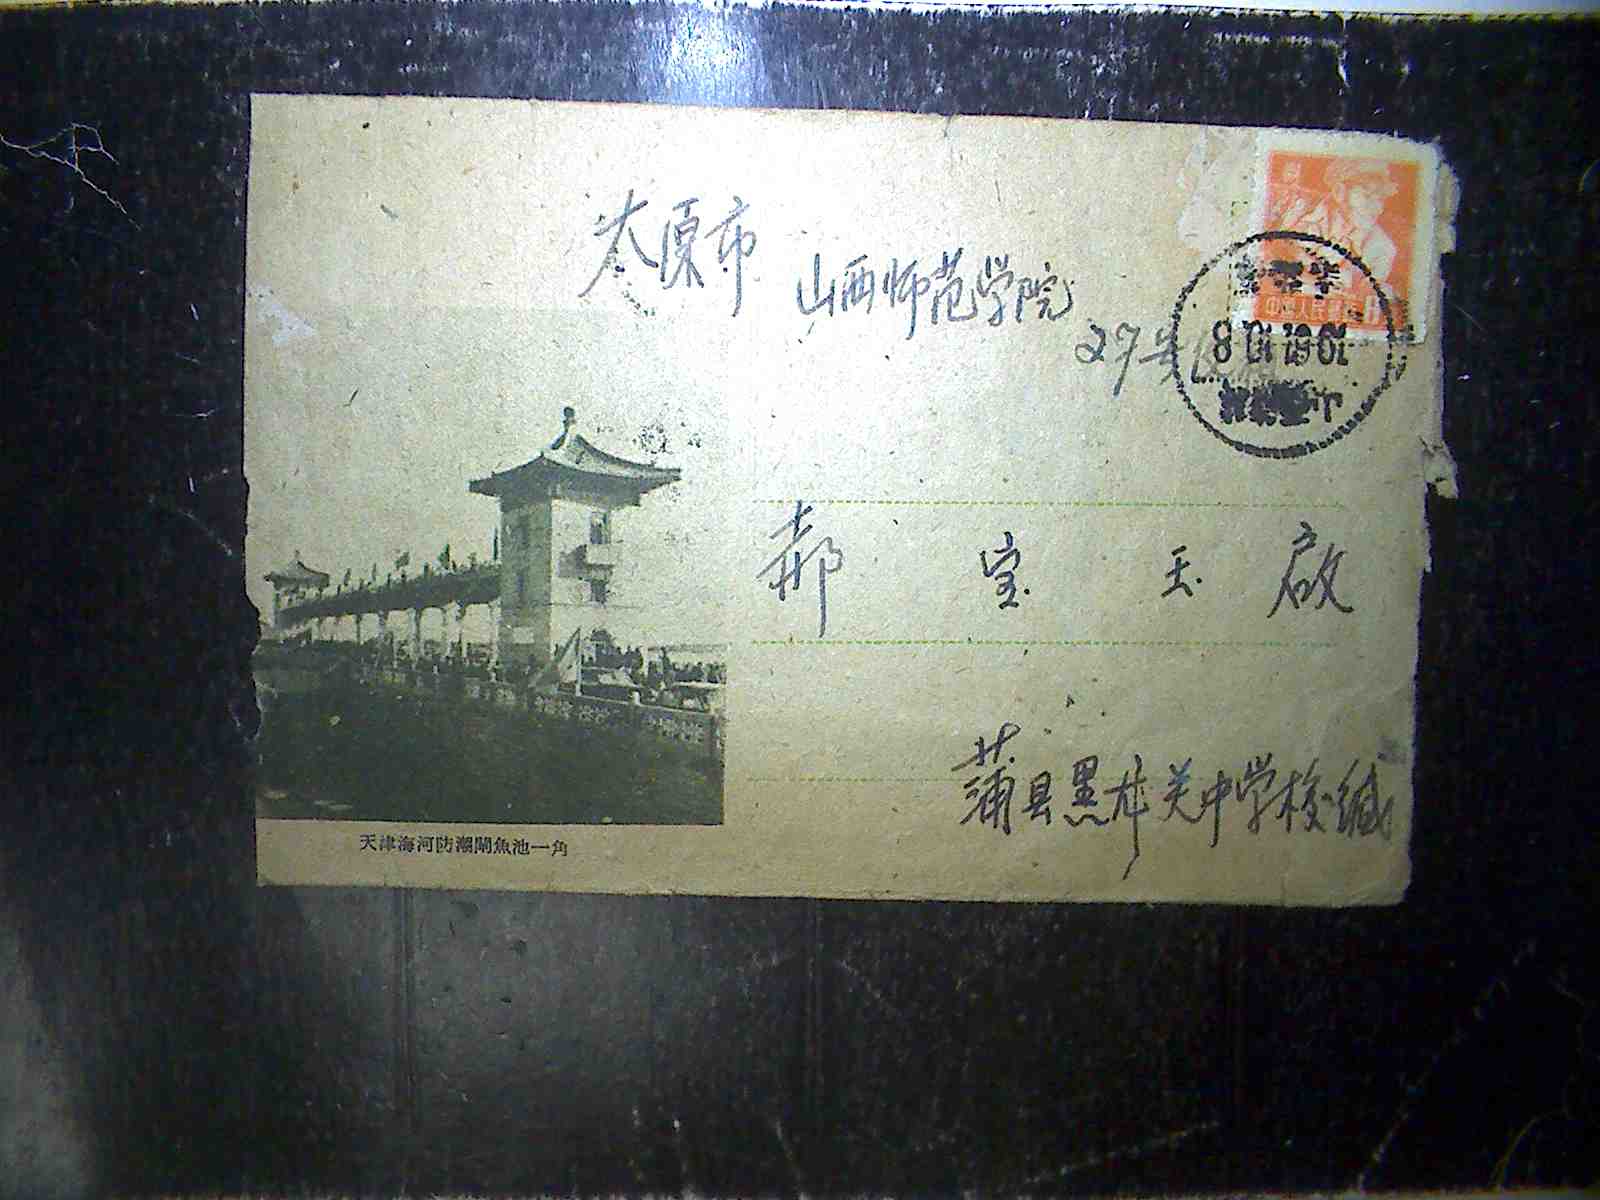 太原市
山西师范学院
27号
郝宝玉启
蒲县黑龙关中学校缄
天津海河防潮閘魚池一角
中国人民邮政8